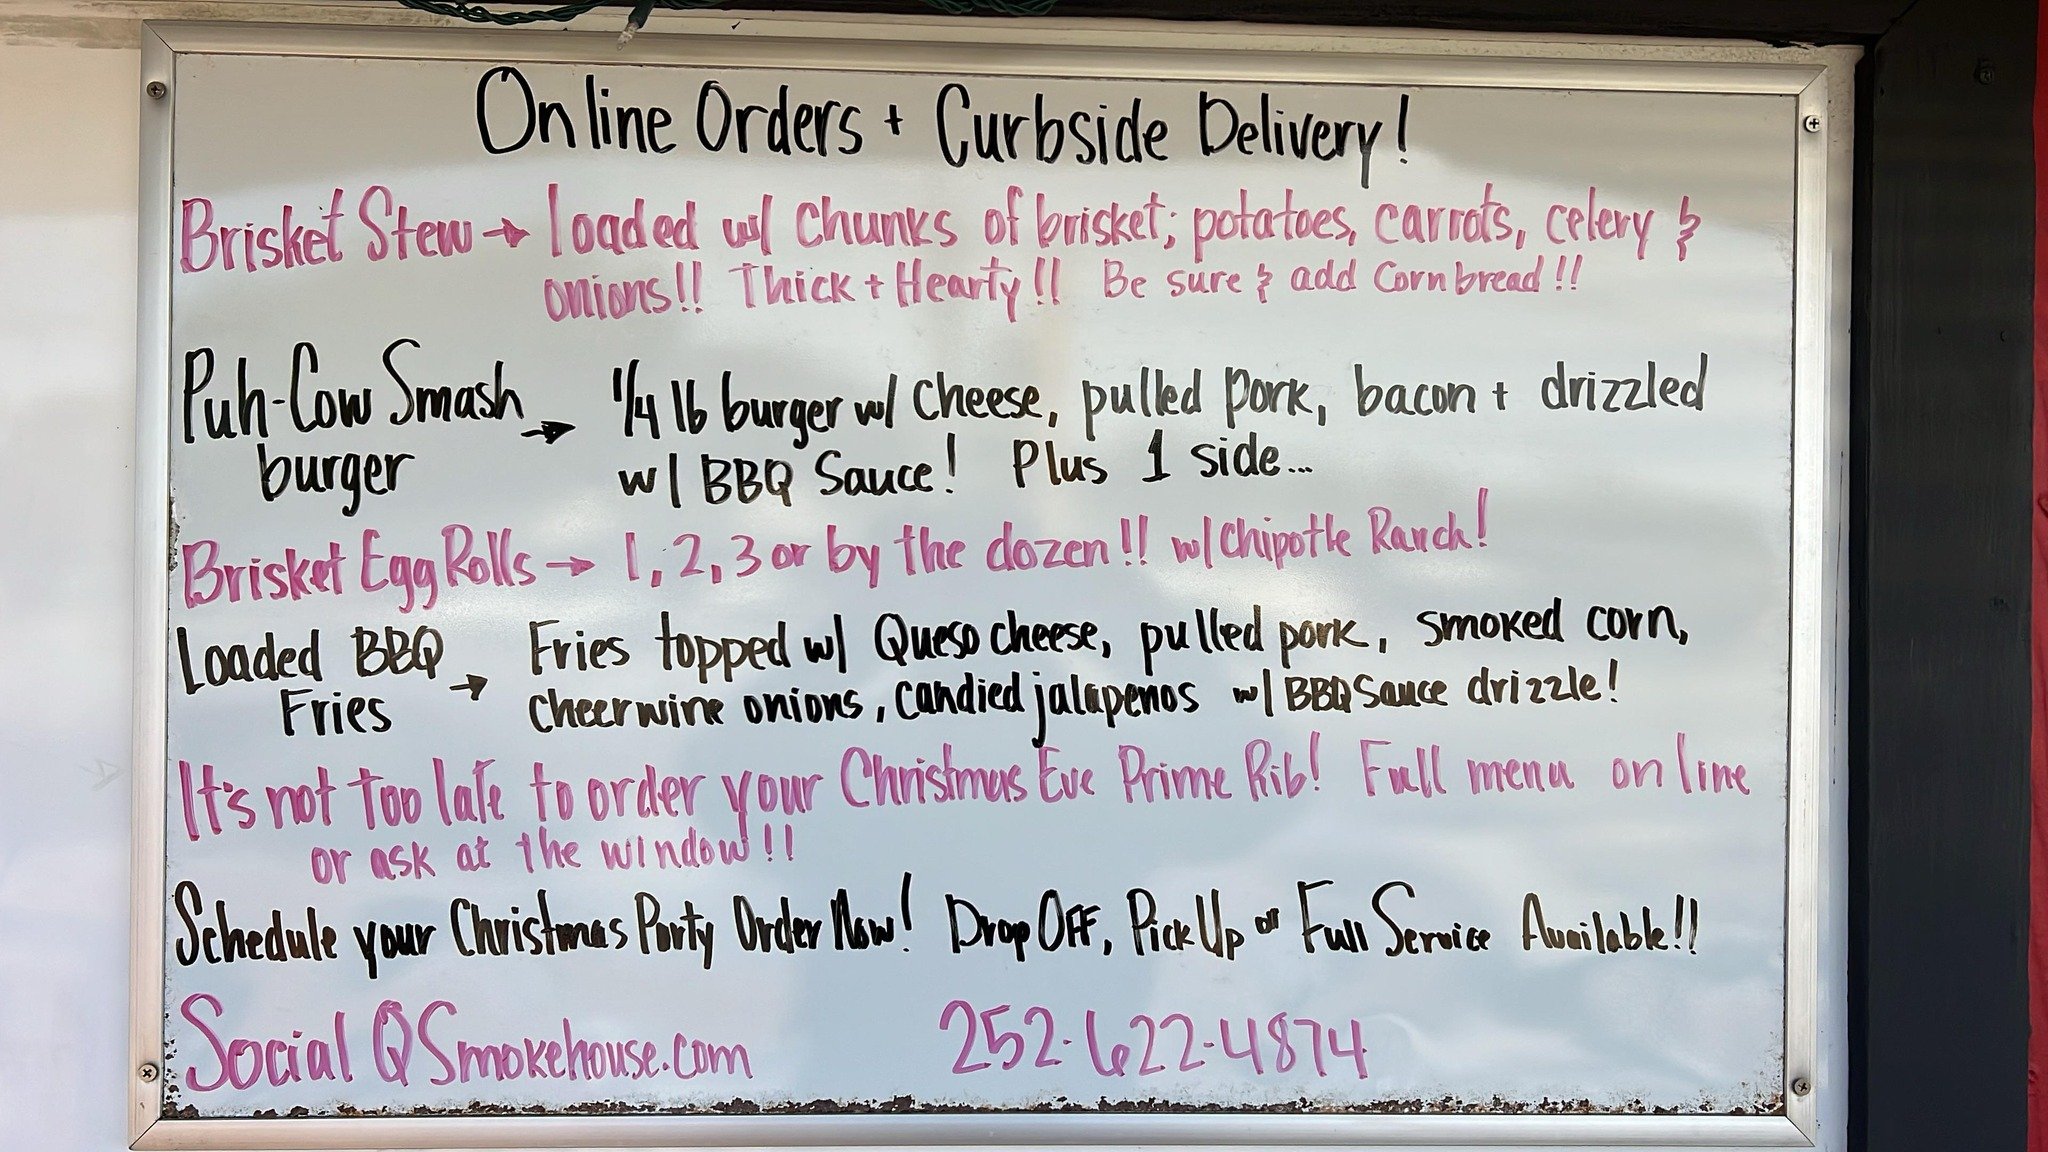 Online Orders + Curbside Delivery!
Brisket Stew → loaded w/ chunks of brisket; potatoes, carrots, celery &
onions!! Thick + Hearty!! Be sure & add Cornbread!!
Puh-Cow Smash → 1/4 lb burger w/ cheese, pulled pork, bacon + drizzled
burger w/ BBQ Sauce! Plus 1 side...
Brisket Egg Rolls → 1, 2, 3 or by the dozen!! w/ Chipotle Ranch!
Loaded BBQ → Fries topped w/ Queso cheese, pulled pork, smoked corn,
Fries cheerwine onions, candied jalapenos w/ BBQ Sauce drizzle!
It's not too late to order your Christmas Eve Prime Rib! Full menu online
or ask at the window!!
Schedule your Christmas Party Order Now! Drop Off, Pick Up or Full Service Available!!
Social QSmokehouse.com 252-622-4874